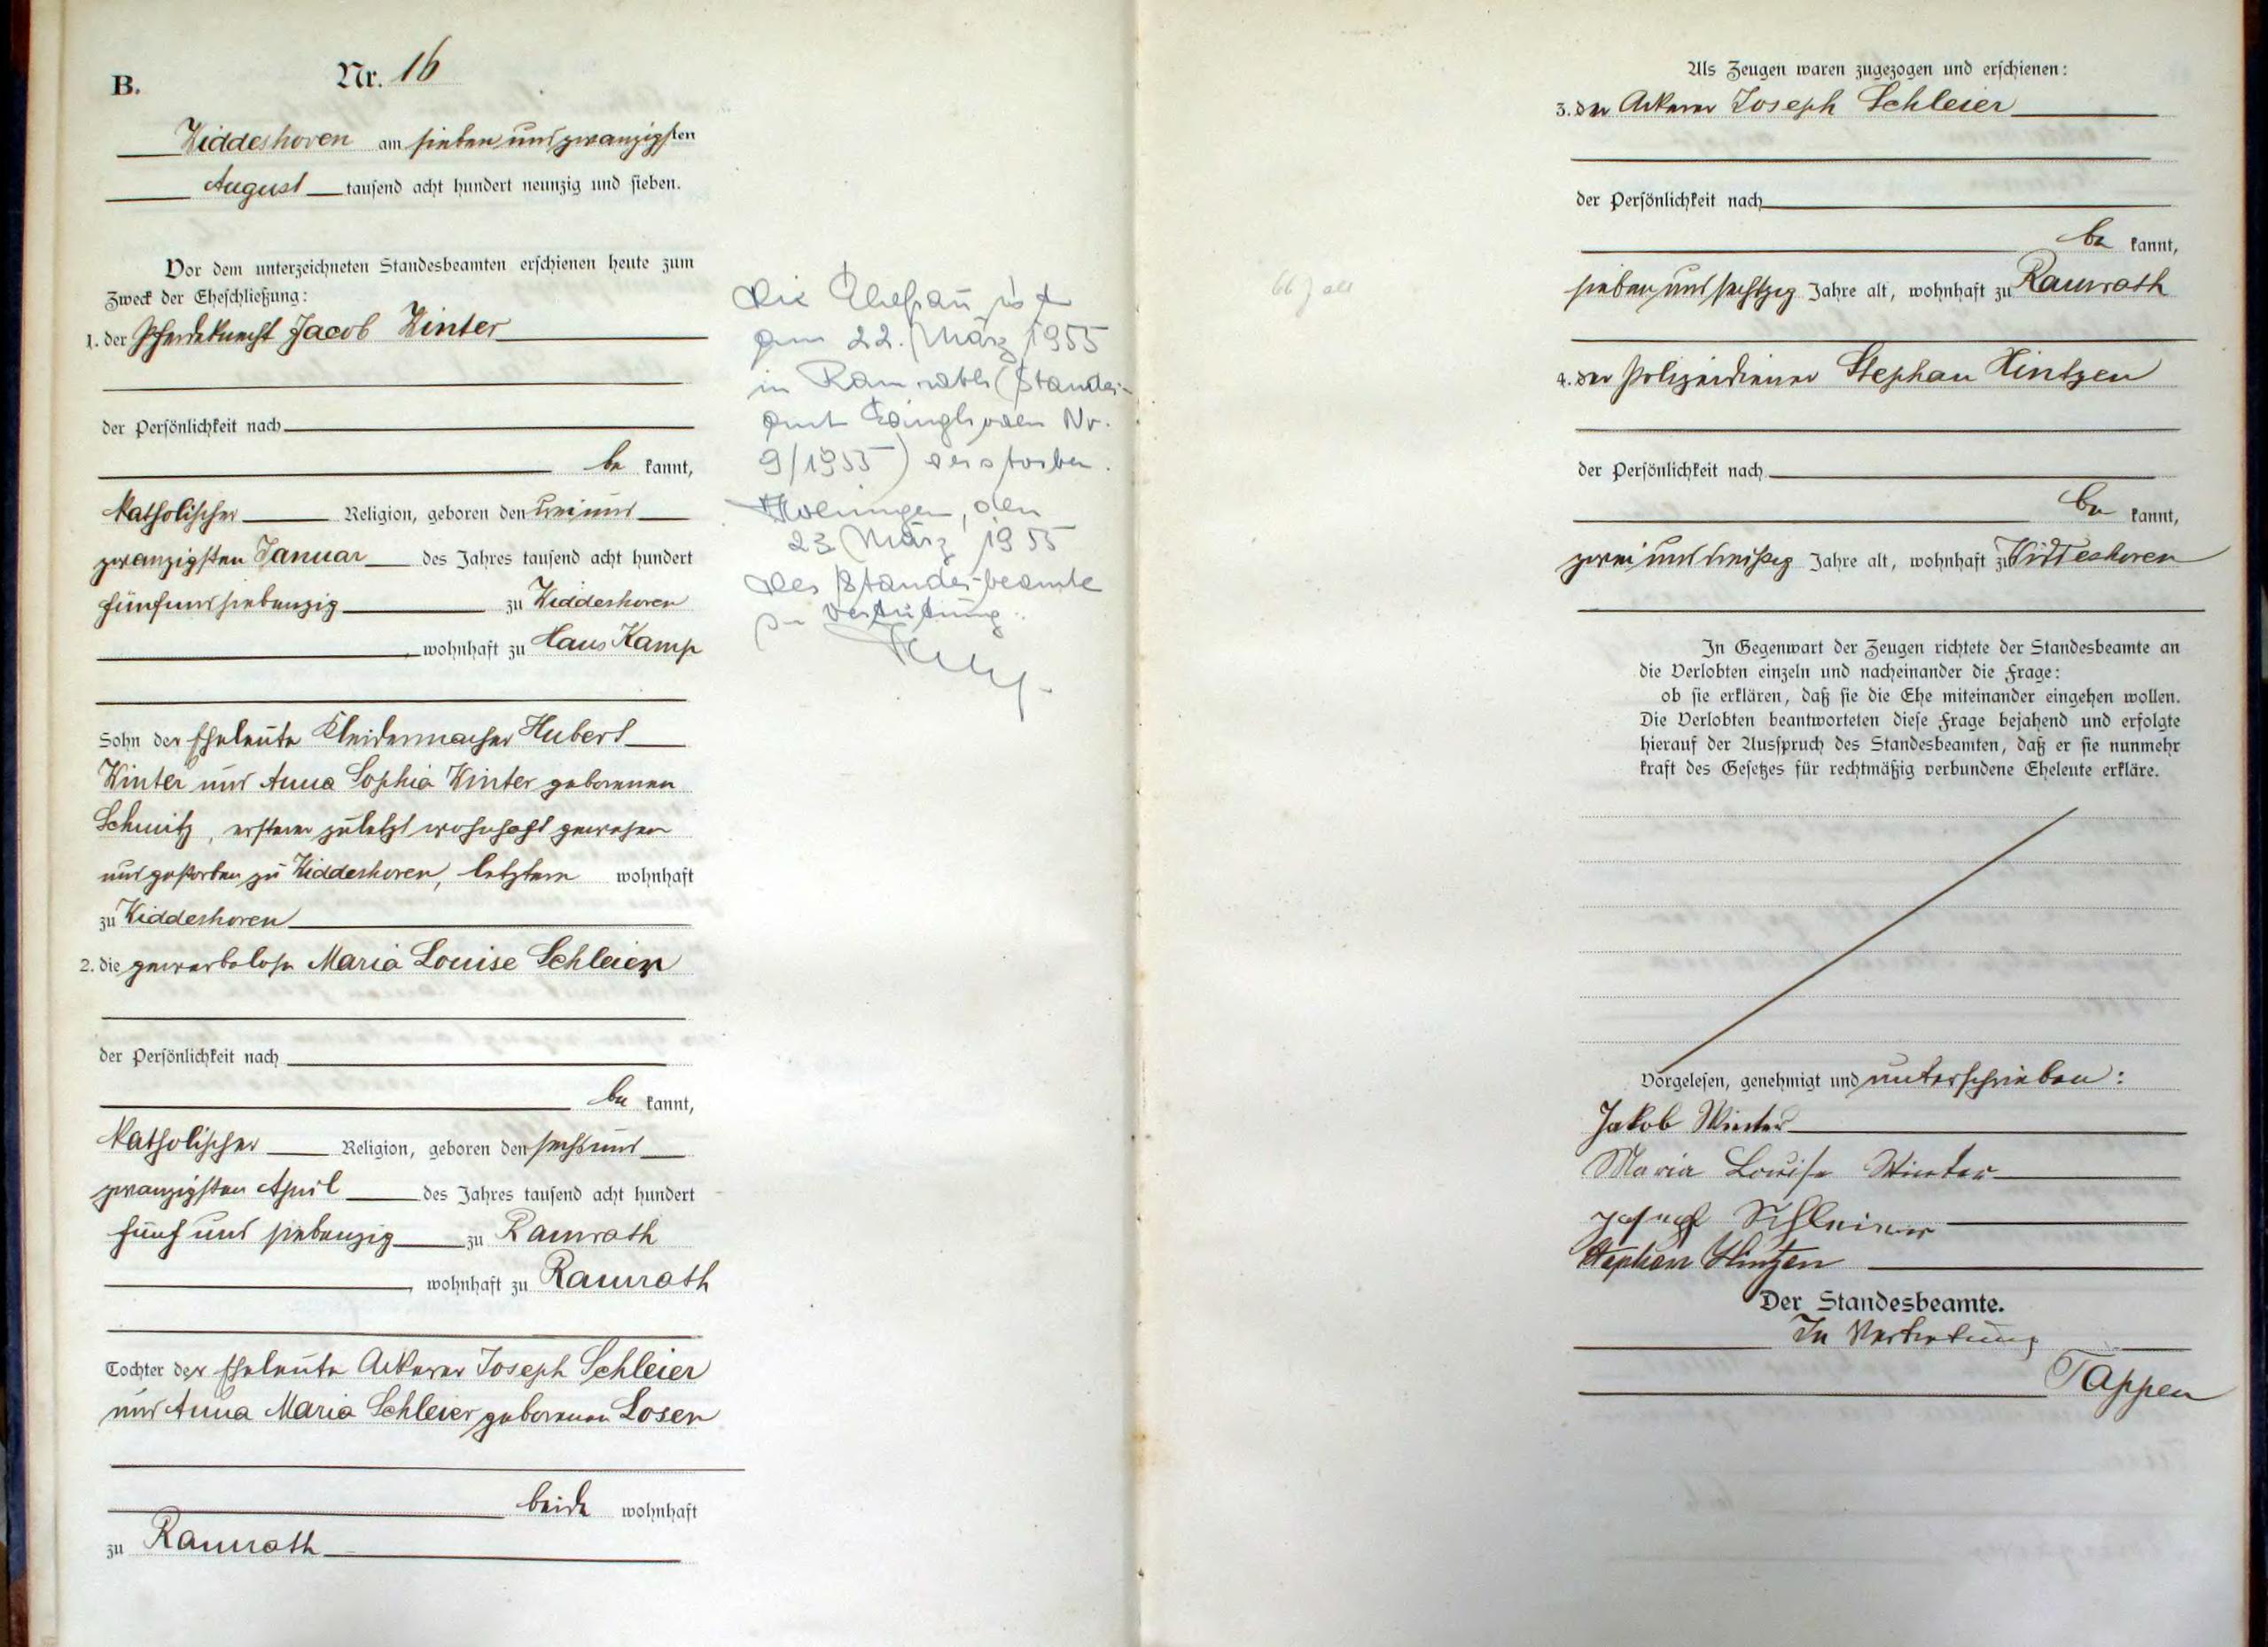 B.
Nr. 16
Widdeshoven am sieben und zwanzigsten
August tausend acht hundert neunzig und sieben.
Vor dem unterzeichneten Standesbeamten erschienen heute zum
Zweck der Eheschließung:
1. der Pferdeknecht Jacob Winter
der Persönlichkeit nach
be kannt,
katholischer Religion, geboren den drei und
zwanzigsten Januar des Jahres tausend acht hundert
fünf und siebenzig zu Widdeshoven
, wohnhaft zu Haus Kamp
Sohn der Eheleute Kleidermacher Hubert
Winter und Anna Sophia Winter geborenen
Schmitz, ersterer zuletzt wohnhaft gewesen
und gestorben zu Widdeshoven, letztere wohnhaft
zu Widdeshoven
2. die gewerbelose Maria Louise Schleier
der Persönlichkeit nach
be kannt,
katholischer Religion, geboren den sechs und
zwanzigsten April des Jahres tausend acht hundert
fünf und siebenzig zu Ramrath
, wohnhaft zu Ramrath
Tochter der Eheleute Ackerer Joseph Schleier
und Anna Maria Schleier geborenen Losen
beide wohnhaft
zu Ramrath
Die Ehefrau ist
am 22. März 1955
in Ramrath (Standes-
amt Nr.
9/1955) verstorben.
den
23. März 1955
Der Standesbeamte
In Vertretung
Als Zeugen waren zugezogen und erschienen:
3. der Ackerer Joseph Schleier
der Persönlichkeit nach
be kannt,
sieben und sechszig Jahre alt, wohnhaft zu Ramrath
4. der Polizeidiener Stephan Hintzen
der Persönlichkeit nach
be kannt,
zwei und dreißig Jahre alt, wohnhaft zu Widdeshoven
In Gegenwart der Zeugen richtete der Standesbeamte an
die Verlobten einzeln und nacheinander die Frage:
ob sie erklären, daß sie die Ehe miteinander eingehen wollen.
Die Verlobten beantworteten diese Frage bejahend und erfolgte
hierauf der Ausspruch des Standesbeamten, daß er sie nunmehr
kraft des Gesetzes für rechtmäßig verbundene Eheleute erkläre.
Vorgelesen, genehmigt und unterschrieben:
Jakob Winter
Maria Louise Winter
Joseph Schleier
Stephan Hintzen
Der Standesbeamte.
In Vertretung
Tappen